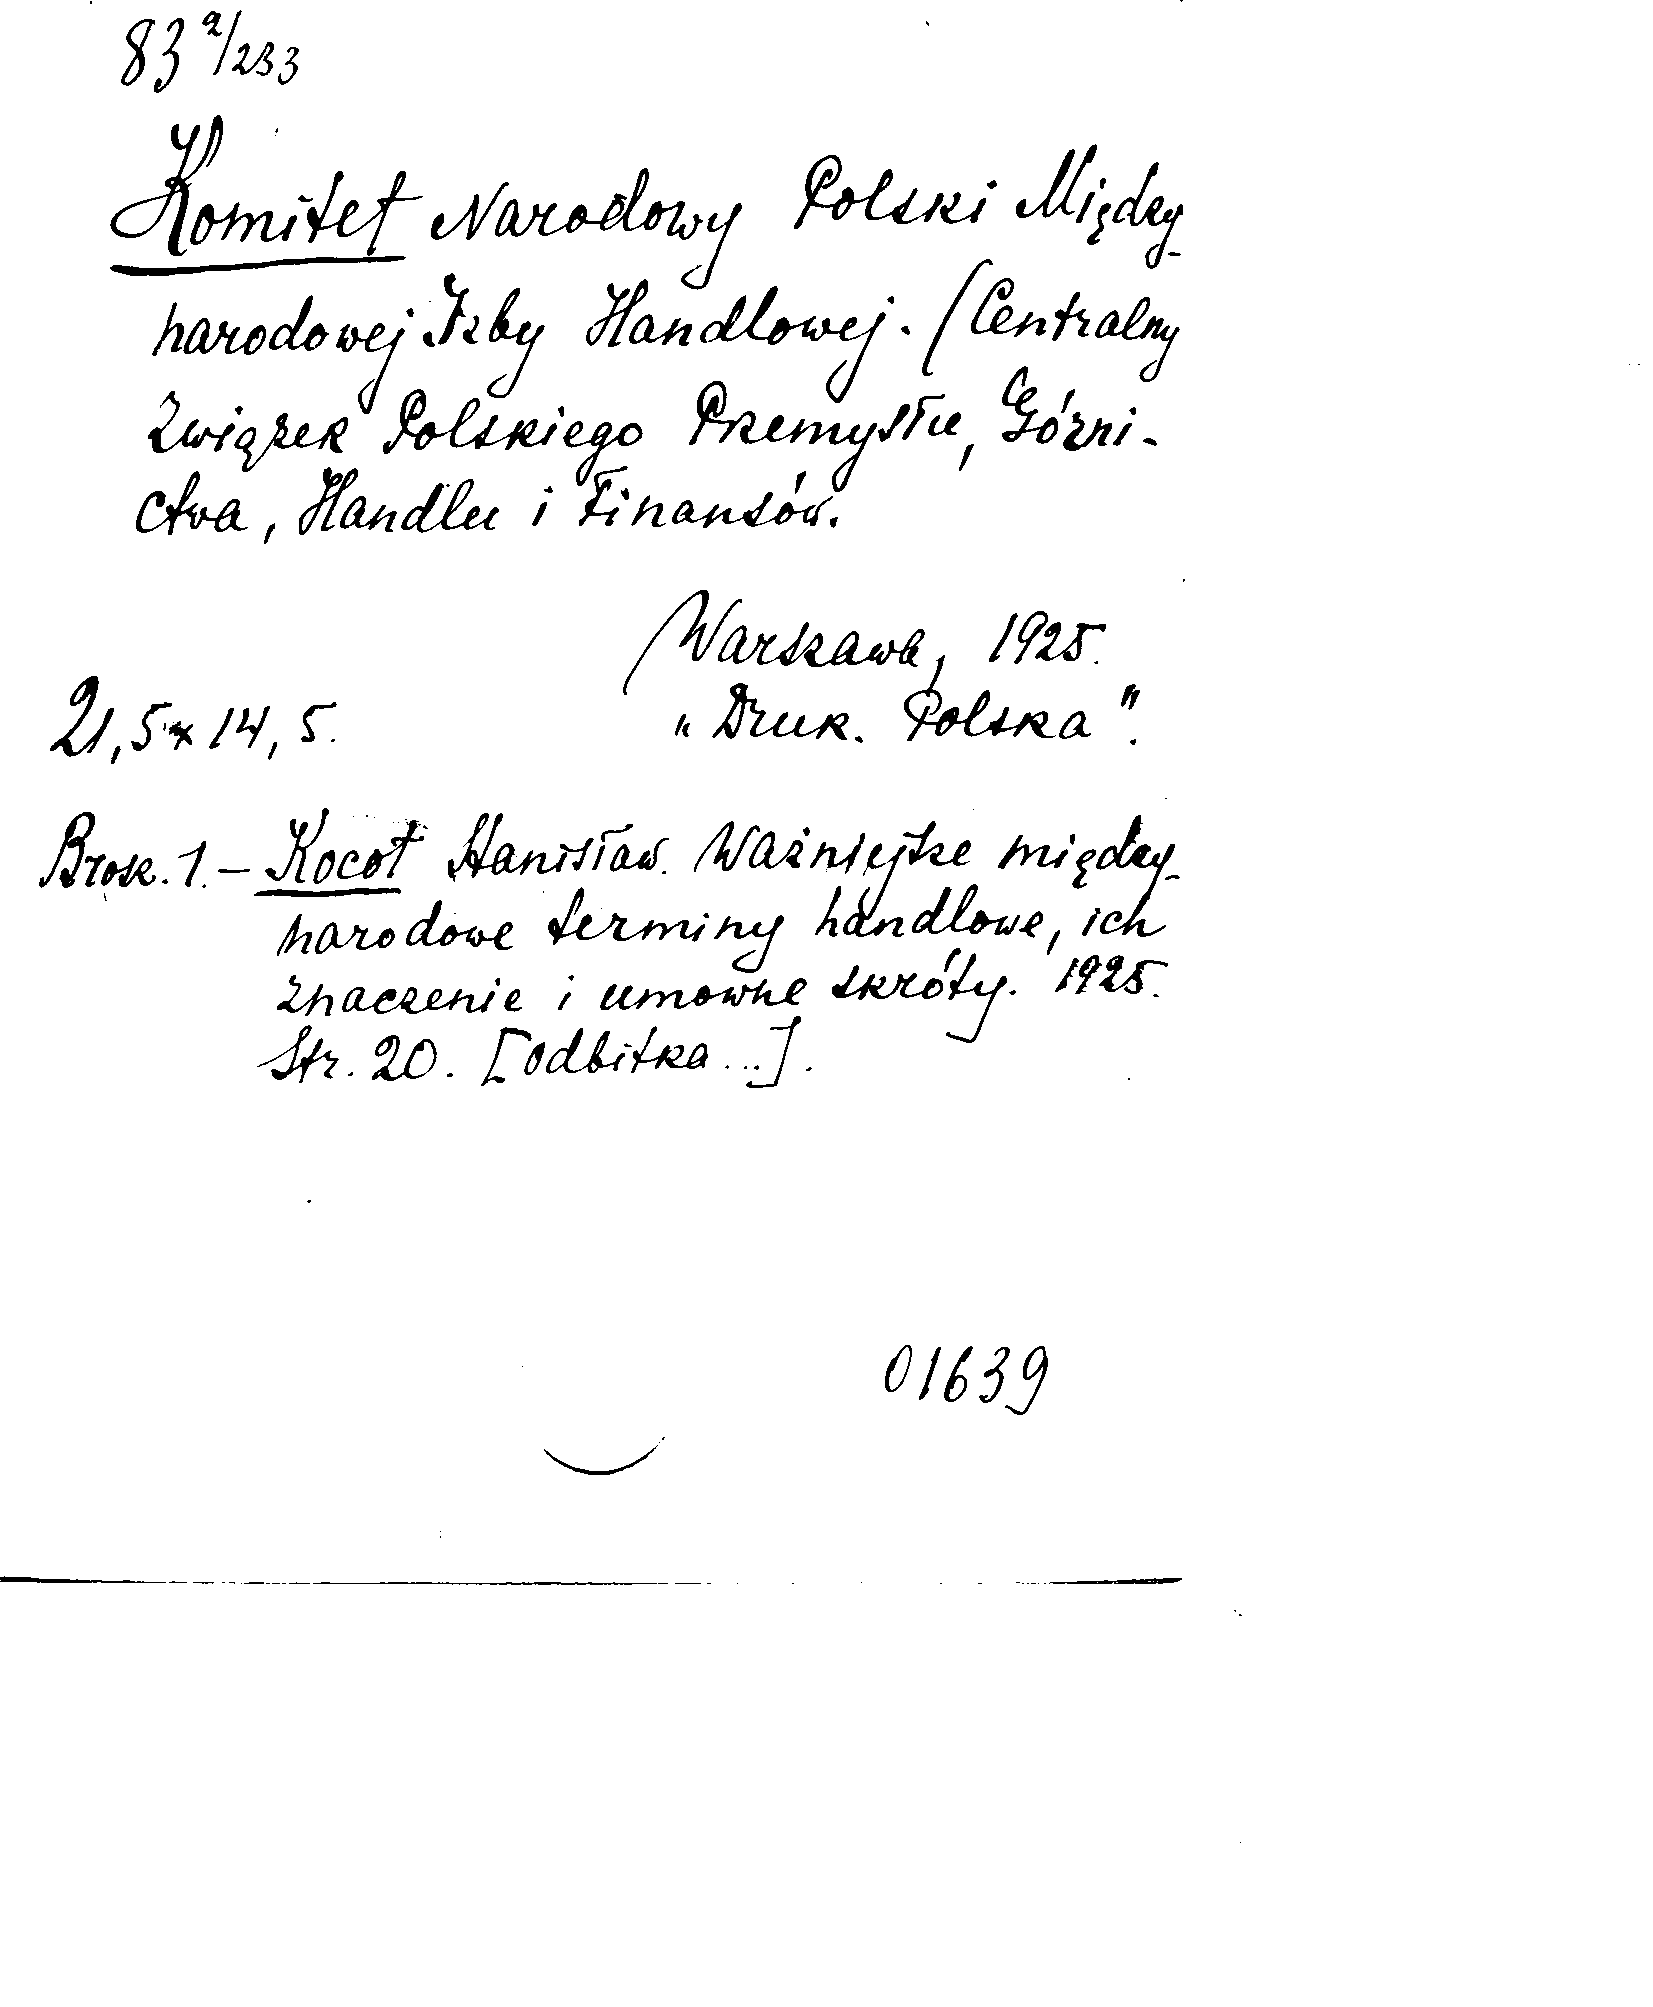 83 2/233
Komitet Narodowy Polski Między-
narodowej Izby Handlowej. (Centralny
Związek Polskiego Przemysłu, Górni-
ctwa, Handlu i Finansów.
Warszawa, 1925.
21,5 x 14,5. „Druk. Polska".
Brosz. 1. – Kocot Stanisław. Ważniejsze między-
narodowe terminy handlowe, ich
znaczenie i umowne skróty. 1925.
Str. 20. [odbitka...].
01639